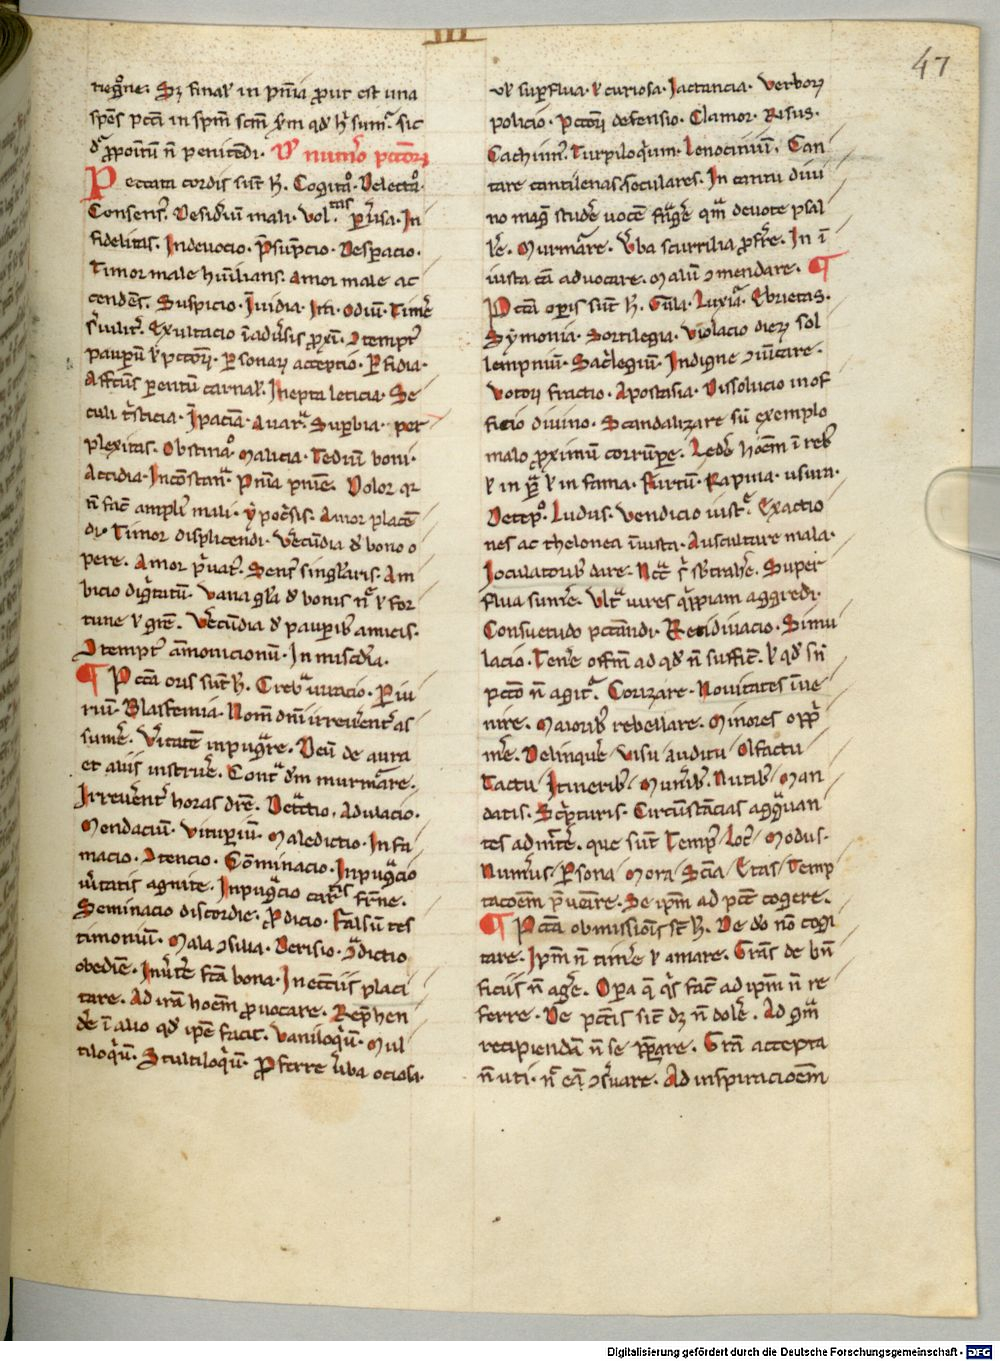 III
47
negōne. Sꝫ final' in pn̄ia prout est una
spēs pctī in spm̄ scm̄ x̄m qd' h' sum̄. sic
ꝓpoītū n̄ penitēdi. D' nūo pctōꝝ
Peccata cordis sūt h'. Cogitao. Delectao.
Consens'. Desid'iū mali. Vol.tas p̄ūsa. In
fidelitas. Indevocio. P̄sūpcio. Despacio.
Timor male hūilians. Amor male ac
cendēs. Suspicio. Īvidia. Ira. Odiū. Tim'e
s'vilit'. Exultacio ī adv'sis ꝓxī. Ɔtempt'
paupū ł pctōꝝ. Personaꝝ acceptio. Perfidia.
Affctūs parentū carnal'. Inepta leticia. Se
culi tristicia. Īpaciā. Avar. Supbia. per
plexitas. Obstinao. Malicia. Tediū boni.
Accidia. Incōstana. Pn̄ia pnīe. Dolor qr
n̄ fac' ampl' mali. ypoc'sis. Amor placē
di. Timor displicendi. V'ecūdia d' bono o
pere. Amor p'vat'. Sens' sing'laris. Am
bicio dig'tatū. Vana gl'a d' bonis nr̄ ł for
tune ł gr̄e. V'ecūdia d' paupib' amicis.
Ɔtempt' am̄onicionū. In mis'dia.
¶ Pctā oris sūt h'. Creba iuracio. Periu
riū. Blasfemia. Nom̄ dn̄i irrev'ent' as
sum'e. V'itatē inpug'are. Deū de aura
et aliis instru'e. Conta d'm murm'are.
Irrev'ent' horas dr̄e. Detctio. Adulacio.
Mendaciū. Vitupiū. Maledictio. Infa
macio. Ɔtencio. Cōminacio. Inpug'cio
v'itatis agnite. Inpug'cio car'tis fr̄ne.
Seminacio discordie. ꝓdicio. Falsū tes
timoniū. Mala ɔsilia. Derisio. Ɔ'dictio
obediē. Inv'tē fctā bona. In ecc'iis placi
tare. Ad irā hoēm ꝓvocare. Rep'hen
d'e ī alio qd' ipe facit. Vaniloq'ū. Mul
tiloq'ū. Stultiloq'ū. Proferre v'ba ociosa.
vł supflua. ł curiosa. Iactancia. Verboꝝ
policio. Pctōꝝ defensio. Clamor. Risus.
Cachinn'. Turpiloq'um. Lenociniū. Can
tare cantilenas seculares. In cantu divi
no mag' stud'e vocē frāg'e qm̄ devote psal
l'e. Murm'are. V'ba scurrilia ꝓfr̄e. In ī
iusta cā advocare. Malū ɔmendare. ¶
Pctā opis sūt h'. Gula. Luxia. Ebrietas.
Symonia. Sortilegia. Violacio dieꝝ sol
lempniū. Sac'legiū. Indigne ɔiūcare.
Votoꝝ fractio. Apostasia. Dissolucio in of
ficio divino. Scandalizare sū exemplo
malo ꝓximū corrūpe. Led'e hoēm ī reb'
ł in psā ł in fama. Furtū. Rapina. Usura.
Decepo. Ludus. Vendicio iust'. Exactio
nes ac thelonea īiusta. Ausculture mala.
Ioculatorib' dare. Ncc' s' sbtrah'e. Super
flua sum'e. Ult' vires q'piam aggredi.
Consuetudo pctandi. Recidivacio. Simu
lacio. Ten'e offm̄ ad qd' n̄ suffic'. ł qd' sn̄
pctō n̄ agit'. Corizare. Novitates īve
nire. Maiorib' rebellare. Minores opp'
m'e. Delinqu'e / Visu auditu / Olfactu /
Tactu / Itinerib' / Mun'ib'. Nutib' / Man
datis. Sc'pturis. Circūstācias aggvan
tes admitt'e. que sūt Temp' / Loc' / Modus.
Num'us / Psona / Mora / Scīa / Etas / Temp
tacoēm p'venire. Se ipm̄ ad pct' cogere.
¶ Pctā obmissiōis st' h'. De do no cogi
tare. Ipm̄ n̄ tim'e ł amare. Gr̄as de bn̄
ficiis n̄ ag'e. Opa q' q's fac' ad ipm̄ n̄ re
ferre. De pctis sic' dꝫ n̄ dol'e. Ad gr̄am
recipiendā n̄ se pp'are. Gr̄a accepta
n̄ uti. n̄ eā ɔs'vare. Ad inspiracioēm
Digitalisierung gefördert durch die Deutsche Forschungsgemeinschaft - DFG